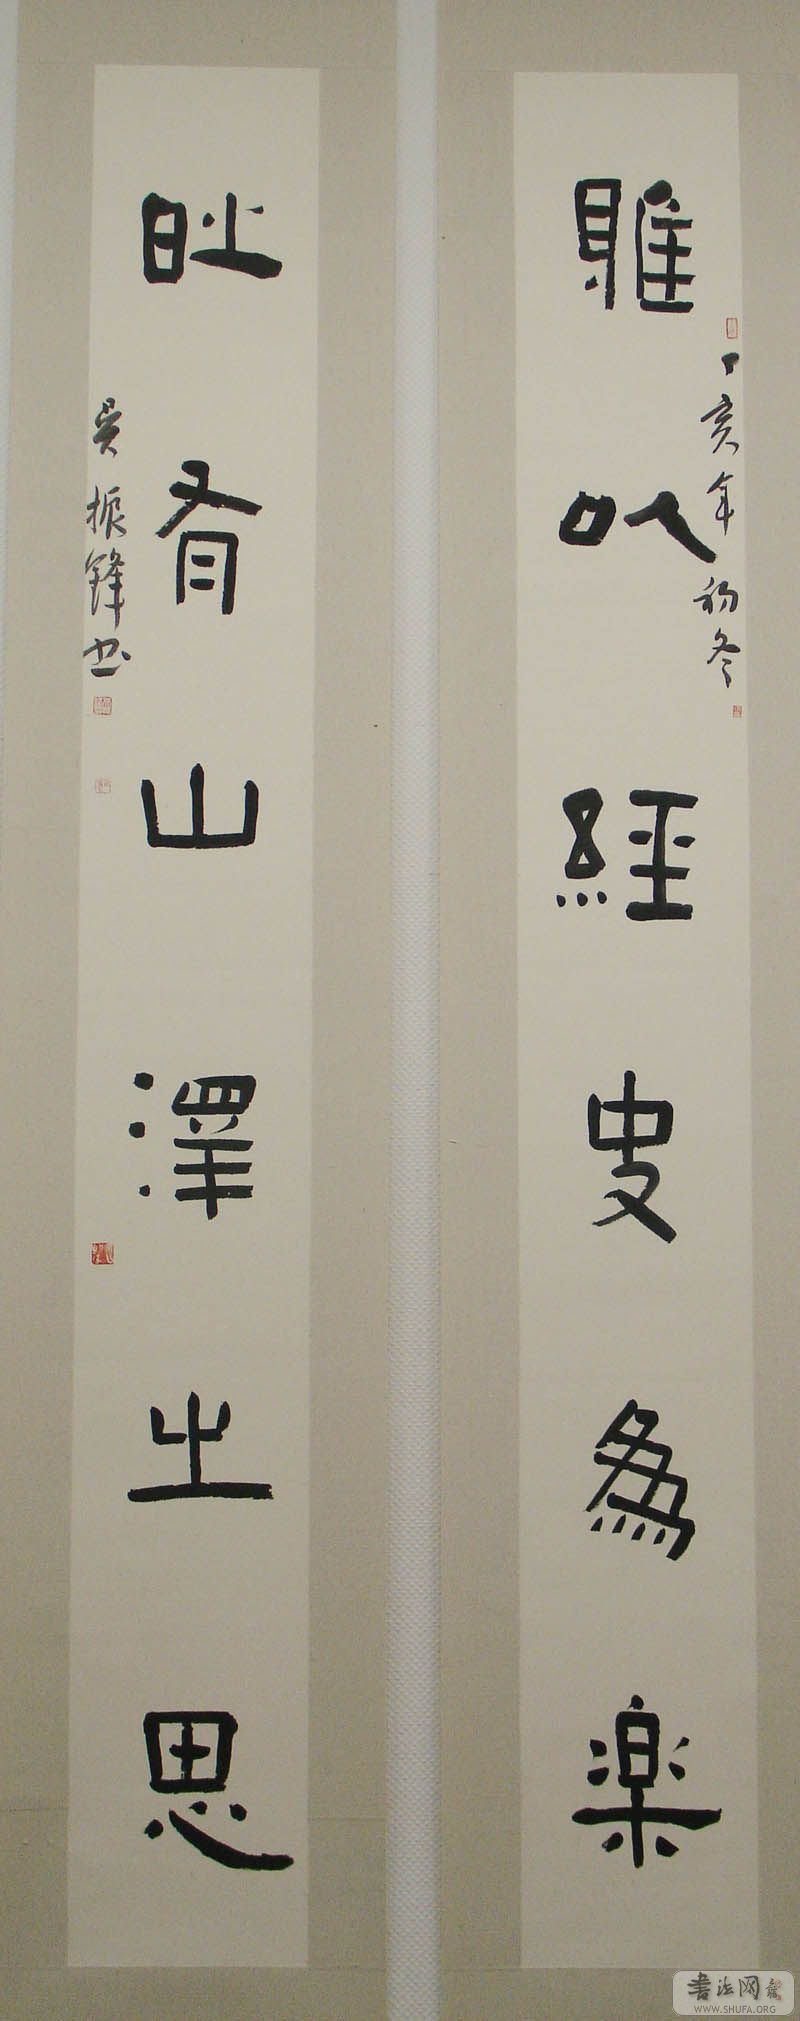 雅以經史為樂
丁亥年初冬
時有山澤之思
吳振鋒書
書法网
WWW.SHUFA.ORG